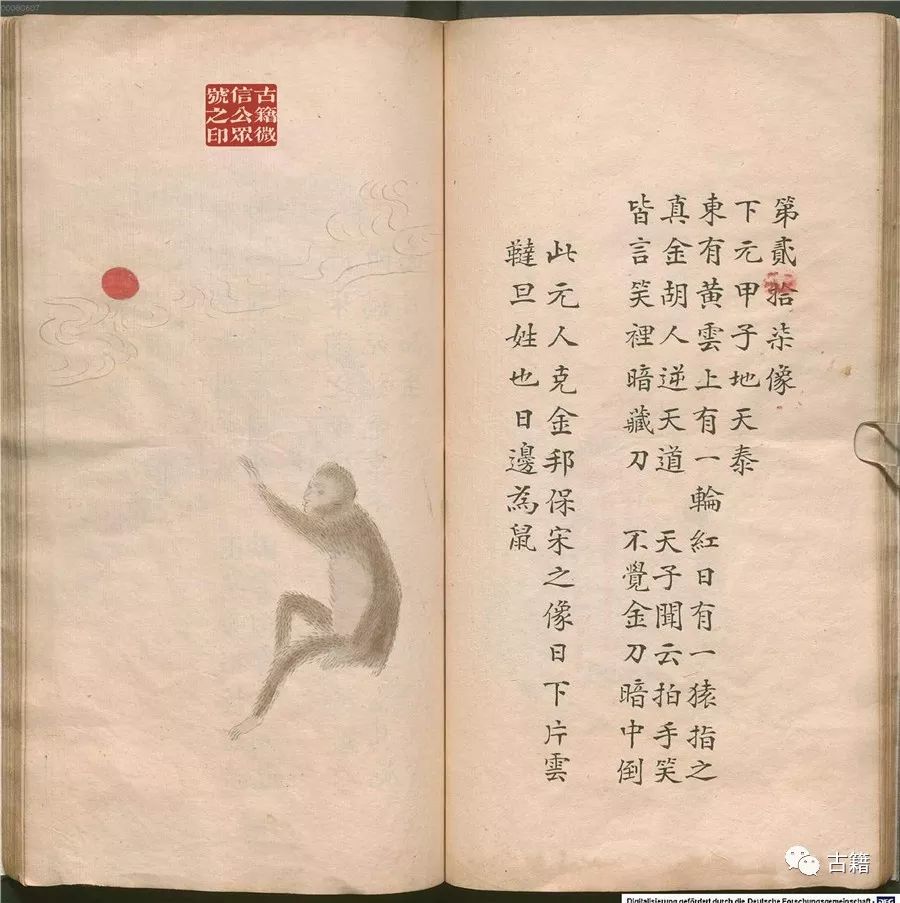 00080607
第貳拾柒像
下元甲子地天泰
東有黃雲上有一輪紅日有一猿指之
真金胡人逆天道 天子聞云拍手笑
皆言笑裡暗藏刀 不覺金刀暗中倒
此元人克金邦保宋之像日下片雲
韃旦姓也日邊為鼠
古籍微
信公眾
號之印
古籍
Digitalisierung gefördert durch die Deutsche Forschungsgemeinschaft - DFG